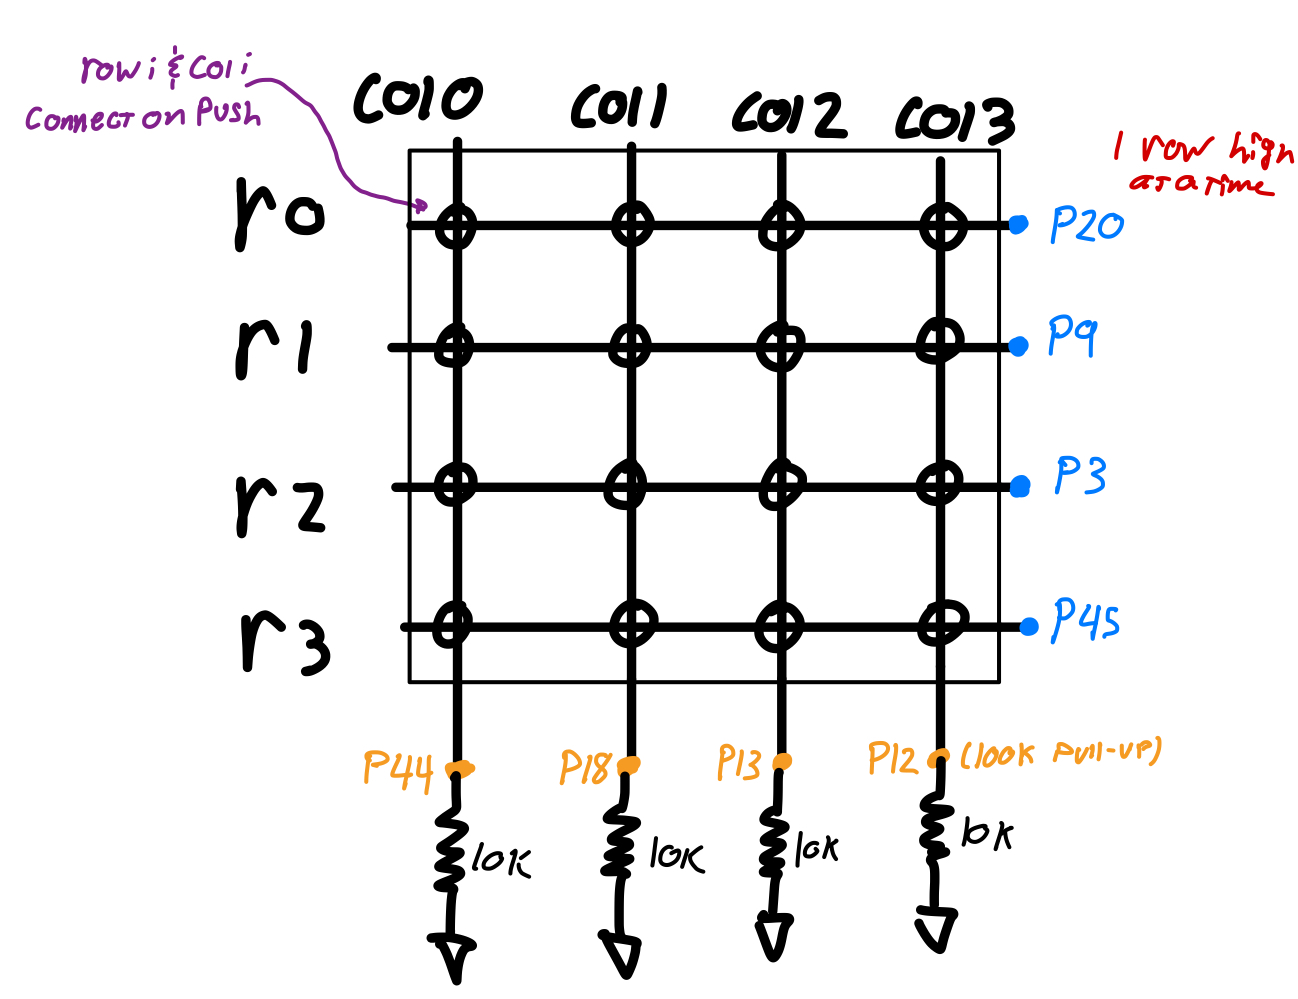 row i & col i
connect on push
col0 col1 col2 col3
1 row high
at a time
r0 P20
r1 P9
r2 P3
r3 P45
P44 P18 P13 P12 (100K pull-up)
10K 10K 10K 10K